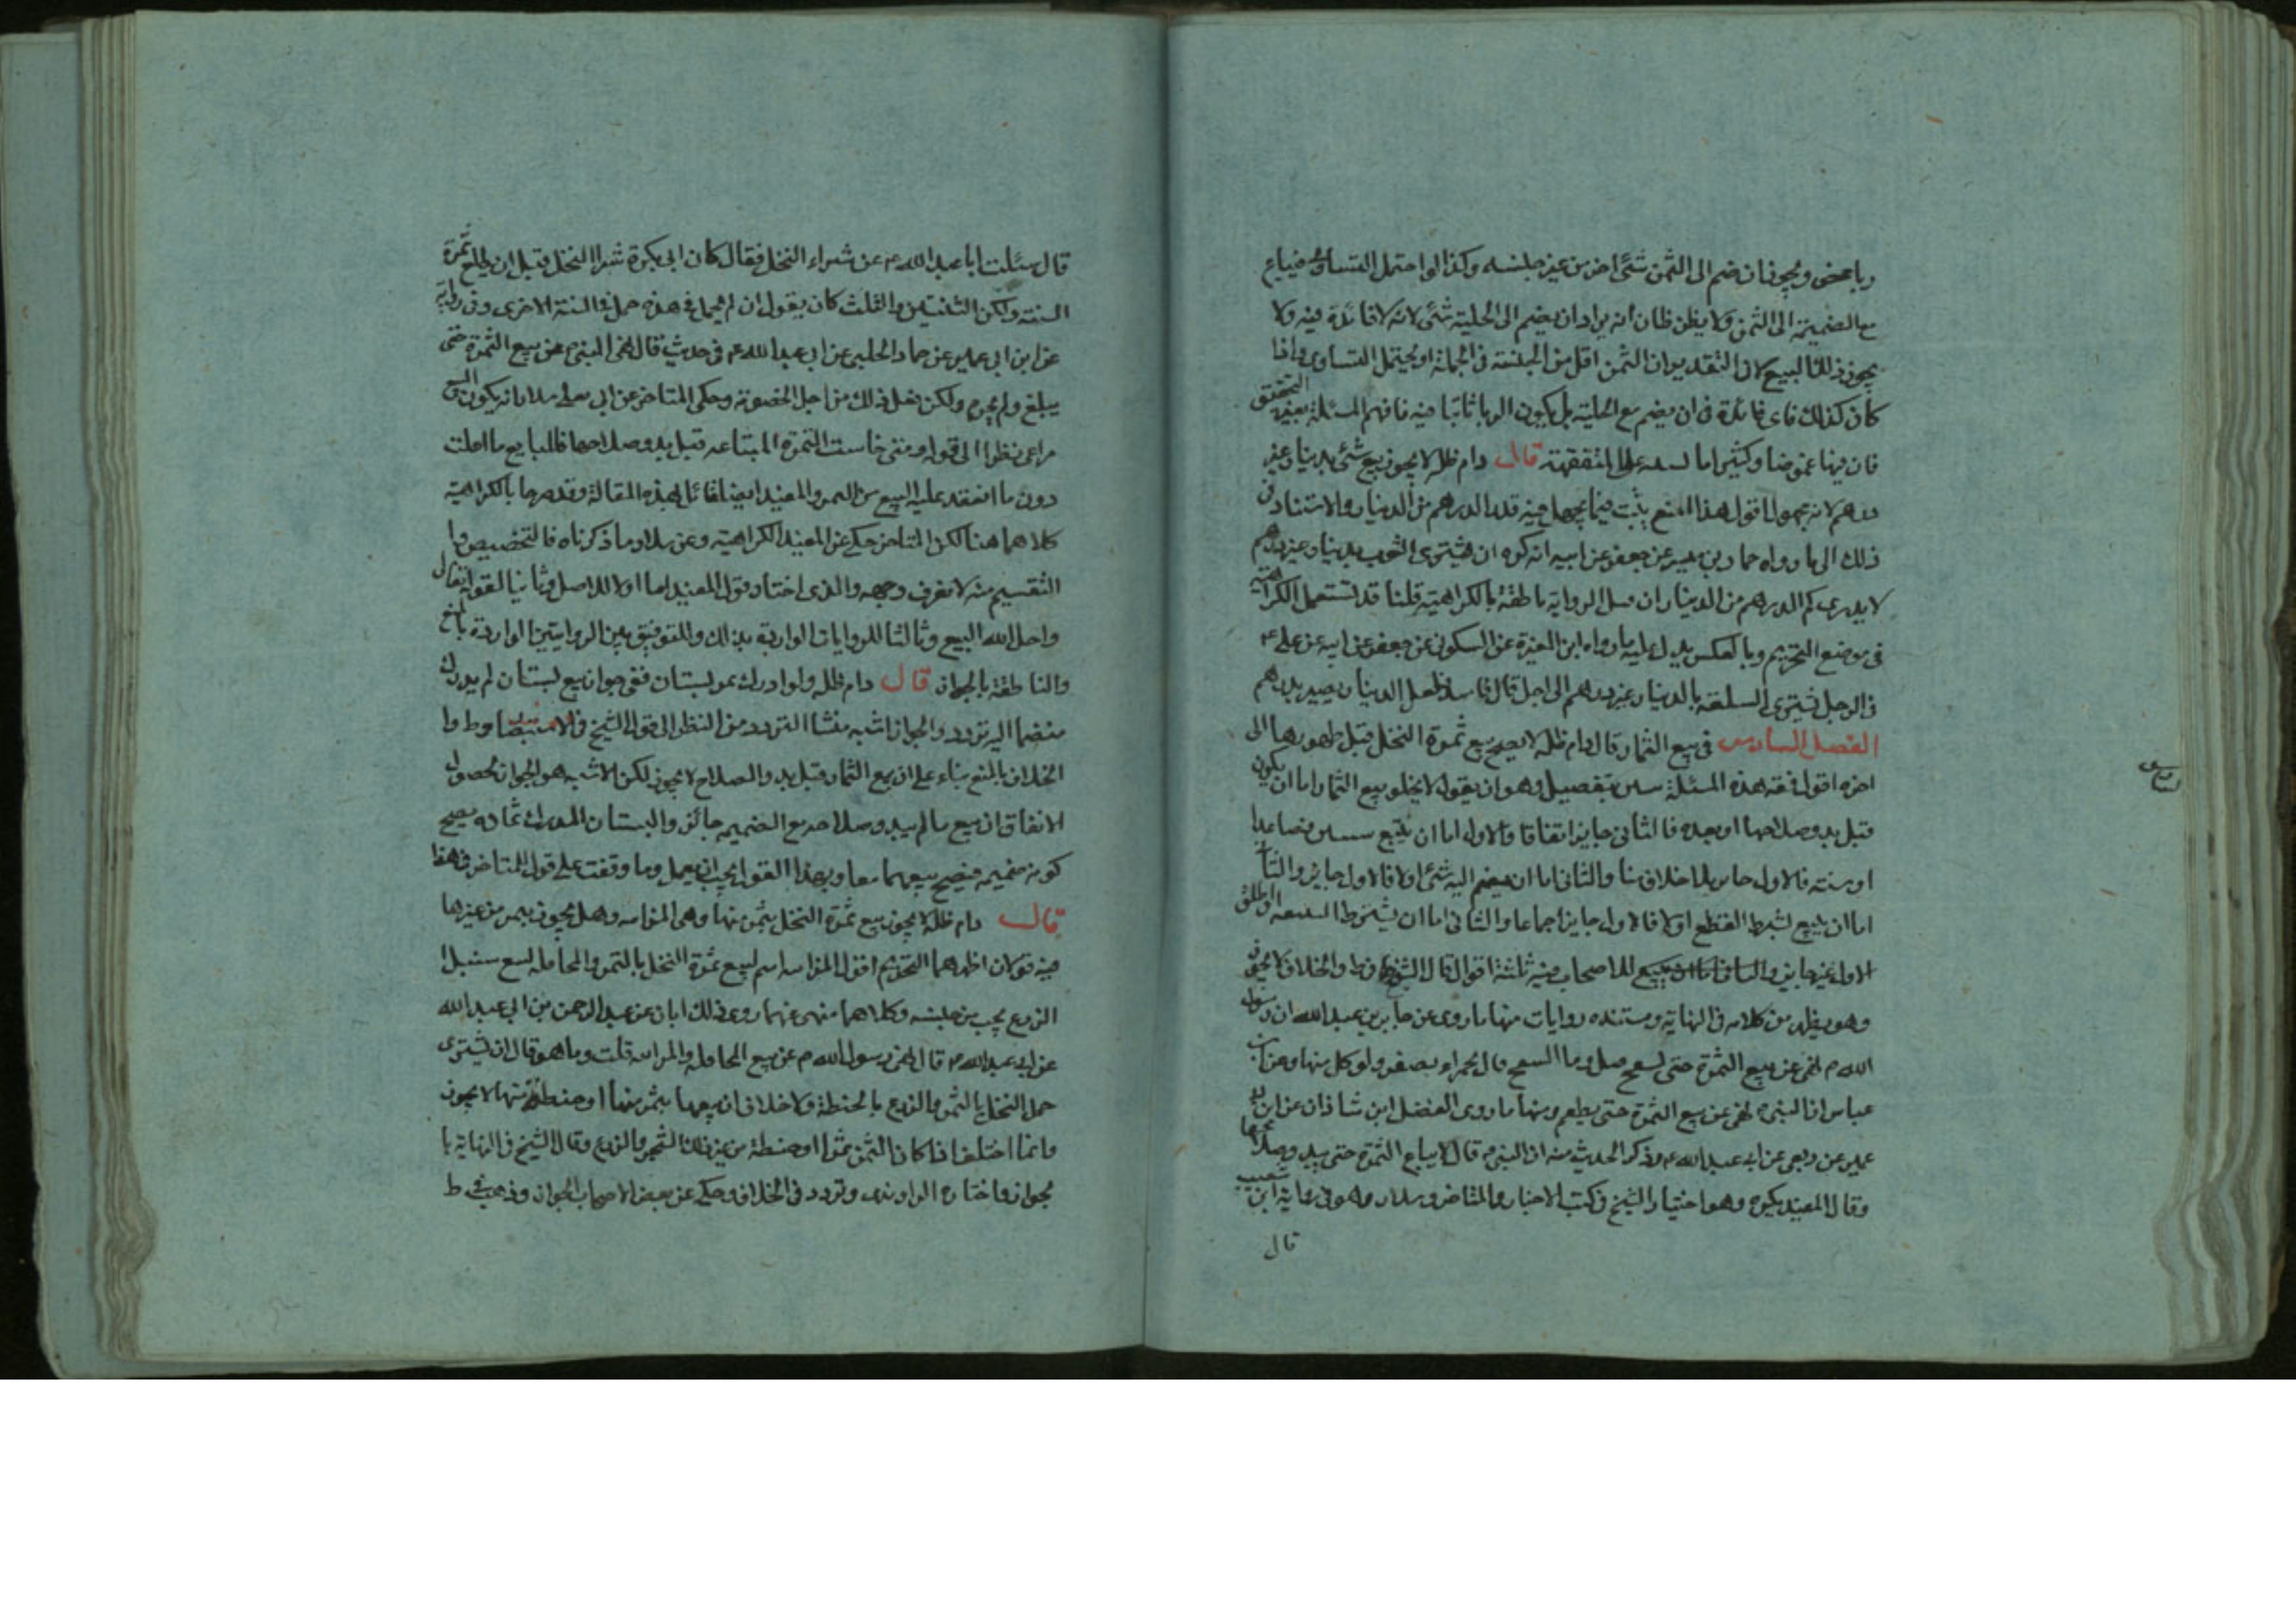 ربا محض ويجوز ان ضم الى الثمن شئ اخر من غير جنسه وكذا لو احتمل التساوى فيباع
مع الضميمة الى الثمن ولا يظن ظان انه يراد ان يضم الى الحلية شئ لانه لا فائدة فيه ولا
يجوز ذلك البيع لان التقدير ان الثمن اقل من الجنسه فى الجملة او يحتمل التساوى واذا
كان كذلك فاى فائدة فى ان يضم مع الحلية بل يكون الربا ثابتا فيه فافهم المسئلة بعين التحقيق
فان فيها غموضا وكثيرا ما على المتفقهة قال دام ظله لا يجوز بيع شئ بدينار غير
درهم لانه مجهول اقول هذا المنع يثبت فيما يجهل فيه قدر الدرهم من الدينار والاستناد فى
ذلك الى ما رواه حماد بن ميسر عن جعفر عن ابيه انه كره ان يشترى الثوب بدينار غير درهم
لا يدرى كم الدرهم من الدينار ان قيل الرواية ناطقة بالكراهية قلنا قد تستعمل الكراهية
فى موضع التحريم وبالعكس يدل عليه ما رواه ابن المغيرة عن السكونى عن جعفر عن ابيه عن على ع
فى الرجل يشترى السلعة بالدينار غير درهم الى اجل قال فاسد فلعل الدينار يصير بدرهم
الفصل السادس فى بيع الثمار قال دام ظله لا يصح بيع ثمرة النخل قبل ظهورها الى
اخره اقول فقه هذه المسئلة بتفصيل وهو ان يقول لا يخلو بيع الثمار اما ان يكون
قبل بدو صلاحها او بعده فالثانى جايز اتفاقا والاول اما ان يبيع سنتين فصاعدا
او سنته فالاول جايز بلا خلاف منا والثانى اما ان يضم اليه شئ او لا فالاول جايز والثانى
اما ان يبيع بشرط القطع او لا فالاول جايز اجماعا والثانى اما ان يشترط او اطلق
الاول غير جايز للاصحاب فيه ثلثة اقوال قال الشيخ فى ط والخلاف لا يجوز
وهو يظهر من كلامه فى النهاية ومستنده روايات منها ما روى عن جابر بن عبد الله ان رسول
الله ص نهى عن بيع الثمرة حتى قيل وما قال يحمر او يصفر ويؤكل منها وعن ابن
عباس ان النبى ص نهى عن بيع الثمرة حتى يطعم ومنها ما روى الفضل ابن شاذان عن ابن ابى
عمير عن ربعى عن ابى عبد الله ع وذكر الحديث منه ان النبى ص قال لا يباع الثمرة حتى يبدو صلاحها
وقال المفيد يكره وهو اختيار الشيخ فى كتب الاخبار والمتاخر وسلار وهو فى رواية ابن شعيب
قال
قال سئلت ابا عبد الله ع عن شراء النخل فقال كان ابى يكره شرا النخل قبل ان يطلع ثمرة
السنة ولكن السنتين والثلث كان يقول ان لم يحمل فى هذه حمل فى السنة الاخرى وفى رواية
عن ابن ابى عمير عن حماد الحلبى عن ابى عبد الله ع فى حديث قال نهى النبى ص عن بيع الثمرة حتى
يبلغ ولم يحرم ولكن فعل ذلك من اجل الخصومة وحكى المتاخر عن ابى يعلى سلار انه يكون البيع
مراعى نظرا الى قوله ومتى خاست الثمرة المبتاعه قبل بدو صلاحها فللبايع ما اغلت
دون ما انعقد عليه البيع من الثمن والمفيد ايضا قائل بهذه المقالة وقد صرحا بالكراهية
كلاهما هنا لكن المتاخر حكى عن المفيد الكراهية وعن سلار ما ذكرناه فالتخصيص او
التقسيم منه لا نعرف وجهه والذى اختاره قول المفيد اما اولا للاصل وثانيا لقوله تعالى
واحل الله البيع وثالثا للروايات الواردة بذلك وللتوفيق بين الروايتين الواردة بالمنع
والناطقة بالجواز قال دام ظله ولو ادرك ثمر بستان ففى جواز بيع بستان لم يدرك
منضما اليه تردد والجواز اشبه منشا التردد من النظر الى قول الشيخ فى الاستبصار وط و
الخلاف بالمنع بناء على ان بيع الثمار قبل بدو الصلاح لا يجوز لكن الاشبه هو الجواز لحصول
الاتفاق ان بيع ما لم يبدو صلاحه مع الضميمه جائز والبستان المدرك ثماره يصح
كونه ضميمه فيصح بيعهما معا وبهذا القول يجب ان يعمل وما وقفت على قول للمتاخر فى هذا
قال دام ظله لا يجوز بيع ثمرة النخل بثمن منها وهى المزابنه وهل يجوز بتمر من غيرها
فيه قولان اظهرهما التحريم اقول المزابنه اسم لبيع ثمرة النخل بالتمر والمحاقله لبيع سنبل
الزرع بحب من جنسه وكلاهما منهى عنهما روى ذلك ابان عن عبد الرحمن بن ابى عبد الله
عن ابى عبد الله ع قال نهى رسول الله ص عن بيع المحاقله والمزابنه قلت وما هو قال ان يشترى
حمل النخل بالتمر والزرع بالحنطة ولا خلاف ان بيعها بتمر منها او حنطة منها لا يجوز
وانما اختلف اذا كان الثمن تمرا او حنطة من غير ذلك الشجر والزرع وقال الشيخ فى النهاية با
لجواز واختاره الراوندى وتردد فى الخلاف وحكى عن بعض الاصحاب الجواز وذهب فى ط